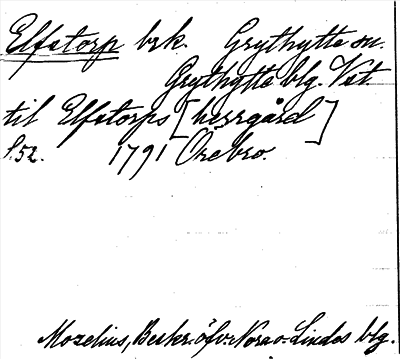 Elfstorp brk. Grythytte sn.
Grythytte blg. Vst.
til Elfstorps [herrgård]
S. 52. 1791 Örebro.
Mozelius, Beskr. öfv. Nora o. Lindes blg.